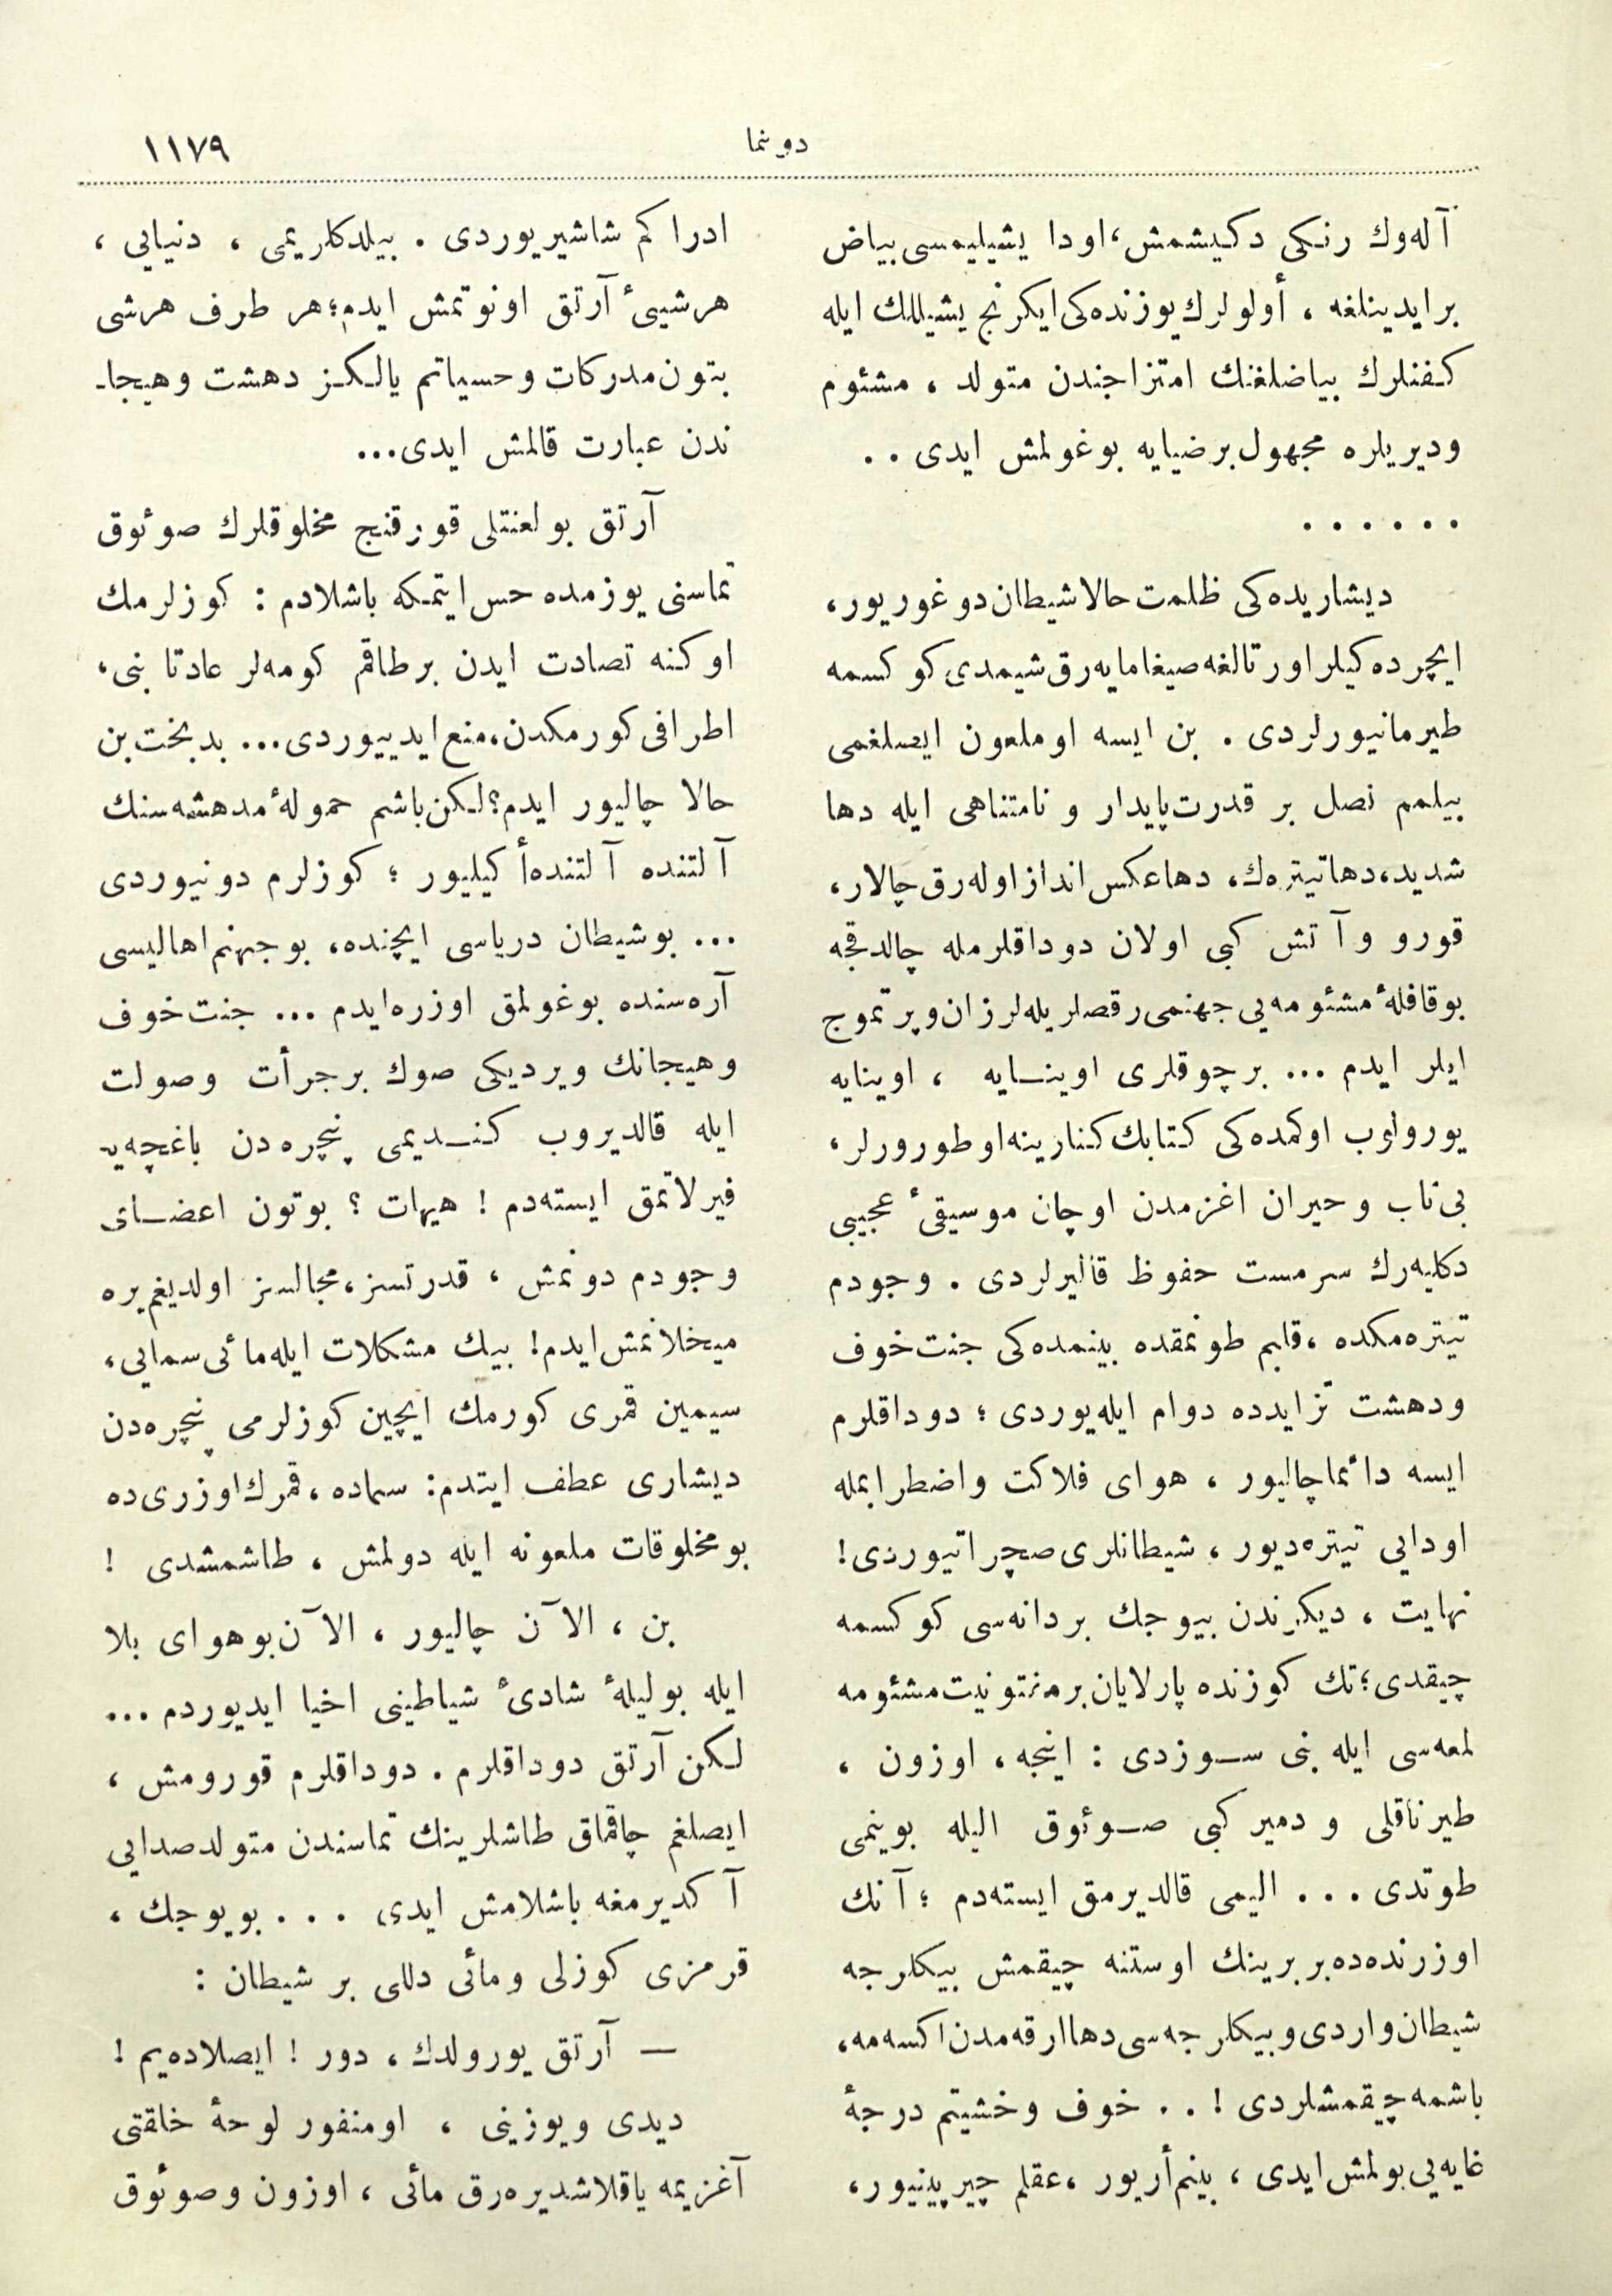 دونما
١١٧٩
آله‌وك رنكی دكیشمش، اودا یشیلیمسی بیاض
برایدینلغه ، أولولرك یوزنده‌كی ایكرنج یشیللك ایله
كفنلرك بیاضلغنك امتزاجندن متولد ، مشئوم
ودیریلره مجهول برضیایه بوغولمش ایدی . .
. . . . . .
دیشاریده‌كی ظلمت حالا شیطان دوغوریور،
ایچرده‌كیلر اورتالغه صیغامایه‌رق شیمدی كوكسمه
طیرمانیورلردی . بن ایسه اوملعون ایصلغمی
بیلمم نصل بر قدرت پایدار و نامتناهی ایله دها
شدید، دهاتیتره‌ك، دهاعكس انداز اوله‌رق چالار،
قورو وآتش كبی اولان دوداقلرمله چالدقجه
بوقافلهٔ مشئومه‌یی جهنمی رقصلریله لرزان وپر تموج
ایلر ایدم ... برچوقلری اوینایه ، اوینایه
یورولوب اوكمده‌كی كتابك كنارینه اوطورورلر،
بی‌تاب وحیران اغزمدن اوچان موسیقیٔ عجیبی
دكلیه‌رك سرمست حفوظ قالیرلردی . وجودم
تیتره‌مكده ، قلبم طوتمقده بینمده‌كی جنت خوف
ودهشت تزایدده دوام ایله‌یوردی ؛ دوداقلرم
ایسه دائما چالیور ، هوای فلاكت واضطرابمله
اودایی تیتره‌دیور ، شیطانلری صچراتیوردی!
نهایت ، دیكرندن بیوجك بردانه‌سی كوكسمه
چیقدی؛ تك كوزنده پارلایان برممنونیت مشئومه
لمعه‌سی ایله بنی سوزدی : اینجه، اوزون ،
طیرناقلی و دمیر كبی صوئوق الیله بوینمی
طوتدی ... الیمی قالدیرمق ایسته‌دم ؛ آنك
اوزرنده‌ده بربرینك اوستنه چیقمش بیكلرجه
شیطان واردی وبیكلرجه‌سی دها ارقه‌مدن اكسه‌مه،
باشمه چیقمشلردی ! .. خوف وخشیتم درجهٔ
غایه‌یی بولمش ایدی ، بینم أریور ، عقلم چیرپینیور،
ادراكم شاشیریوردی . بیلدكلریمی ، دنیایی ،
هرشیئ آرتق اونوتمش ایدم؛ هر طرف هرشی
بتون مدركات وحسیاتم یالكز دهشت وهیجا-
ندن عبارت قالمش ایدی...
آرتق بو لعنتلی قورقنج مخلوقلرك صوئوق
تماسنی یوزمده حس ایتمكه باشلادم : كوزلرمك
اوكنه تصادف ایدن برطاقم كومه‌لر عادتا بنی،
اطرافی كورمكدن، منع ایدییوردی... بدبخت بن
حالا چالیور ایدم؟ لكن باشم حمولهٔ مدهشه‌سنك
آلتنده آلتنده أكیلیور ؛ كوزلرم دونیوردی
... بو شیطان دریاسی ایچنده، بوجهنم اهالیسی
آره‌سنده بوغولمق اوزره ایدم ... جنت خوف
وهیجانك ویردیكی صوك برجرأت وصولت
ایله قالدیروب كندیمی پنچره‌دن باغچه‌یه
فیرلاتمق ایسته‌دم ! هیهات ؟ بوتون اعضای
وجودم دونمش ، قدرتسز، مجالسز اولدیغم یره
میخلانمش ایدم! بیك مشكلات ایله مائی سمایی،
سیمین قمری كورمك ایچین كوزلرمی پنچره‌دن
دیشاری عطف ایتدم: سماده، قمرك اوزری‌ده
بومخلوقات ملعونه ایله دولمش ، طاشمشدی !
بن ، الآن چالیور ، الآن بوهوای بلا
ایله بولیلهٔ شادیٔ شیاطینی احیا ایدیوردم ...
لكن آرتق دوداقلرم . دوداقلرم قورومش ،
ایصلغم چاقماق طاشلرینك تماسندن متولد صدایی
آكدیرمغه باشلامش ایدی ... بویوجك ،
قرمزی كوزلی ومائی دللی بر شیطان :
— آرتق یورولدك ، دور ! ایصلاده‌یم !
دیدی ویوزینی ، اومنفور لوحهٔ خلقتی
آغزیمه یاقلاشدیره‌رق مائی ، اوزون وصوئوق